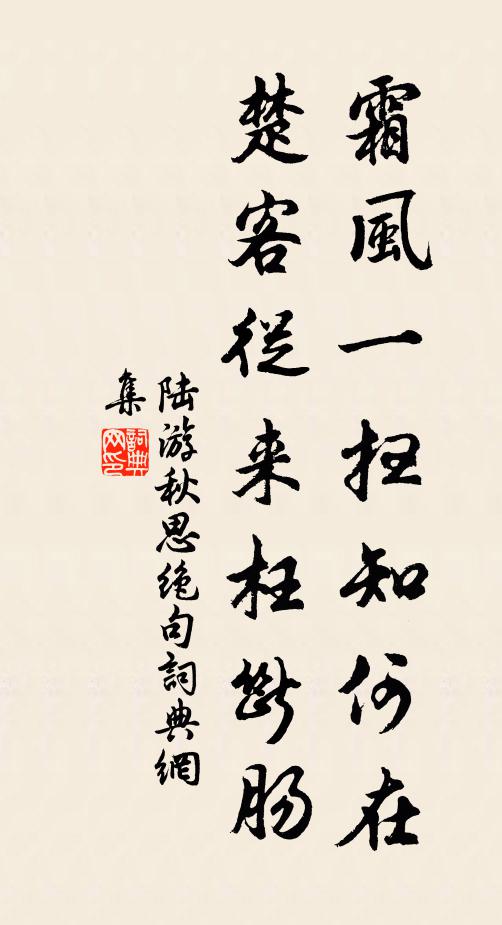 霜風一扫知何在
楚客從来枉斷肠
陆游秋思绝句詞典網
集
詞典网印